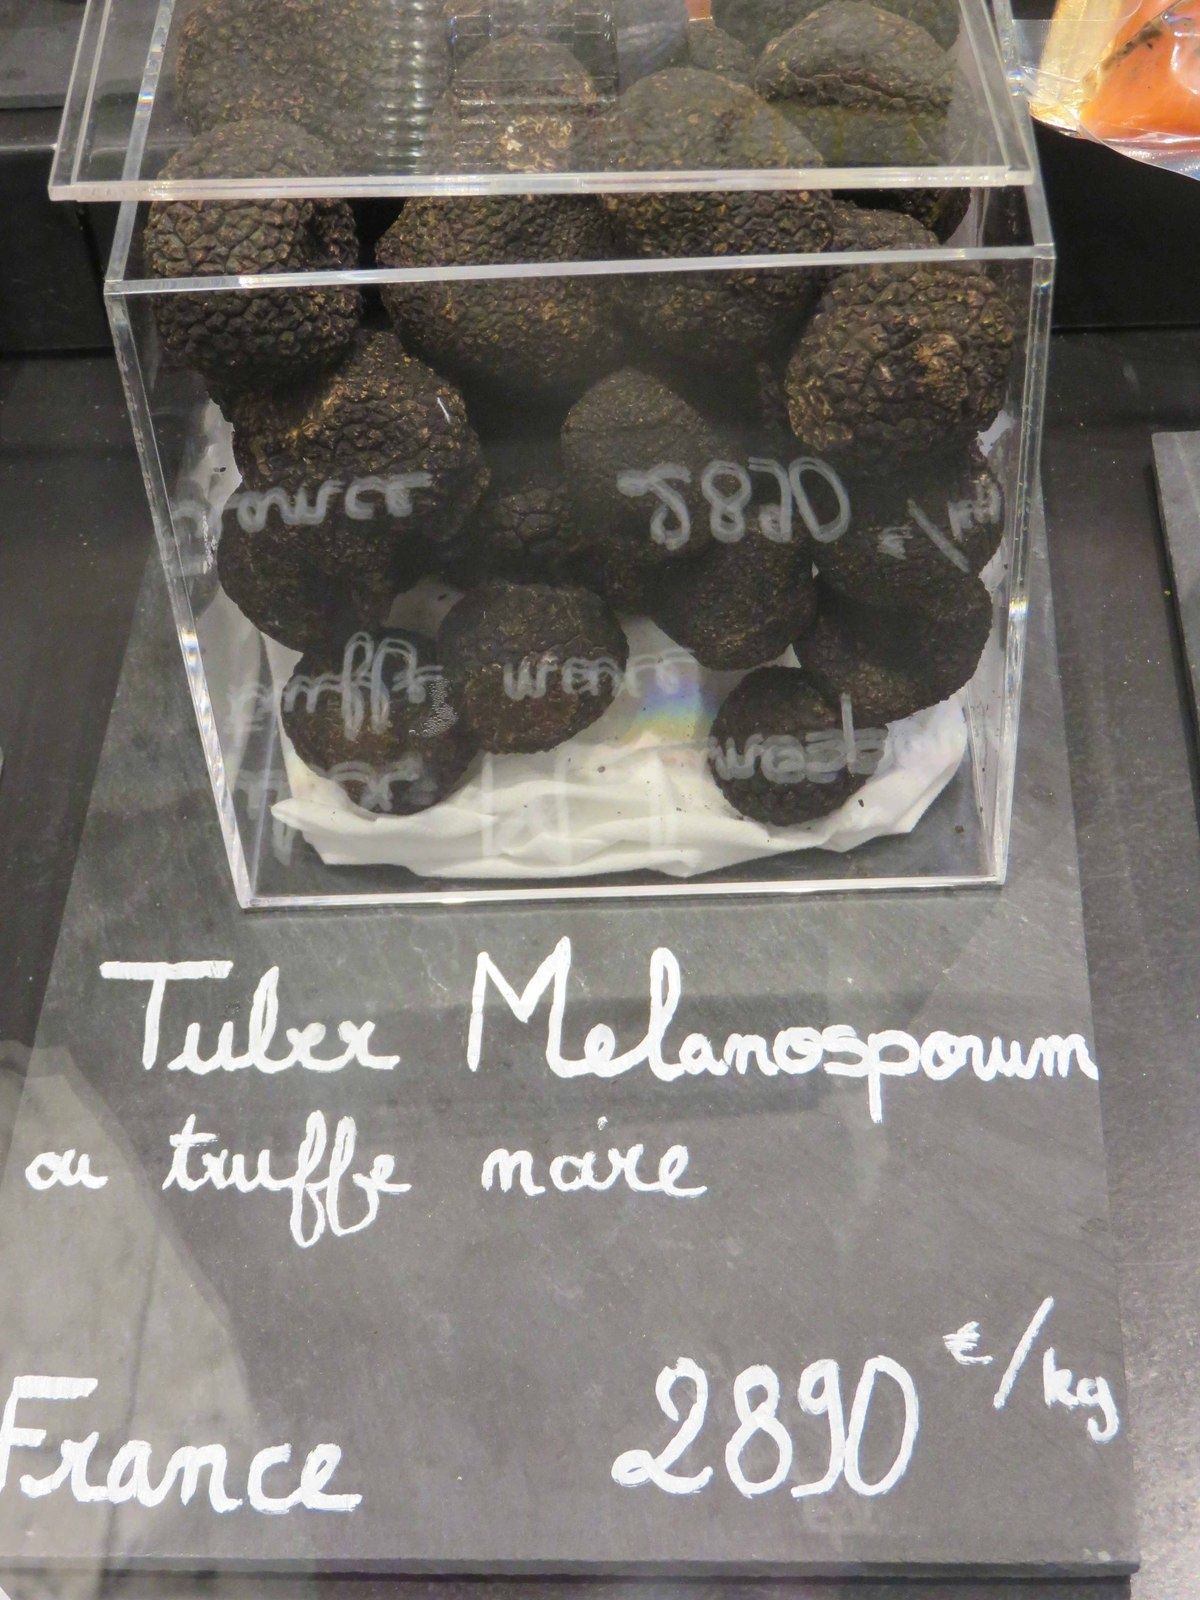 Tuber Melanosporum
ou truffe noire
France 2890 €/kg